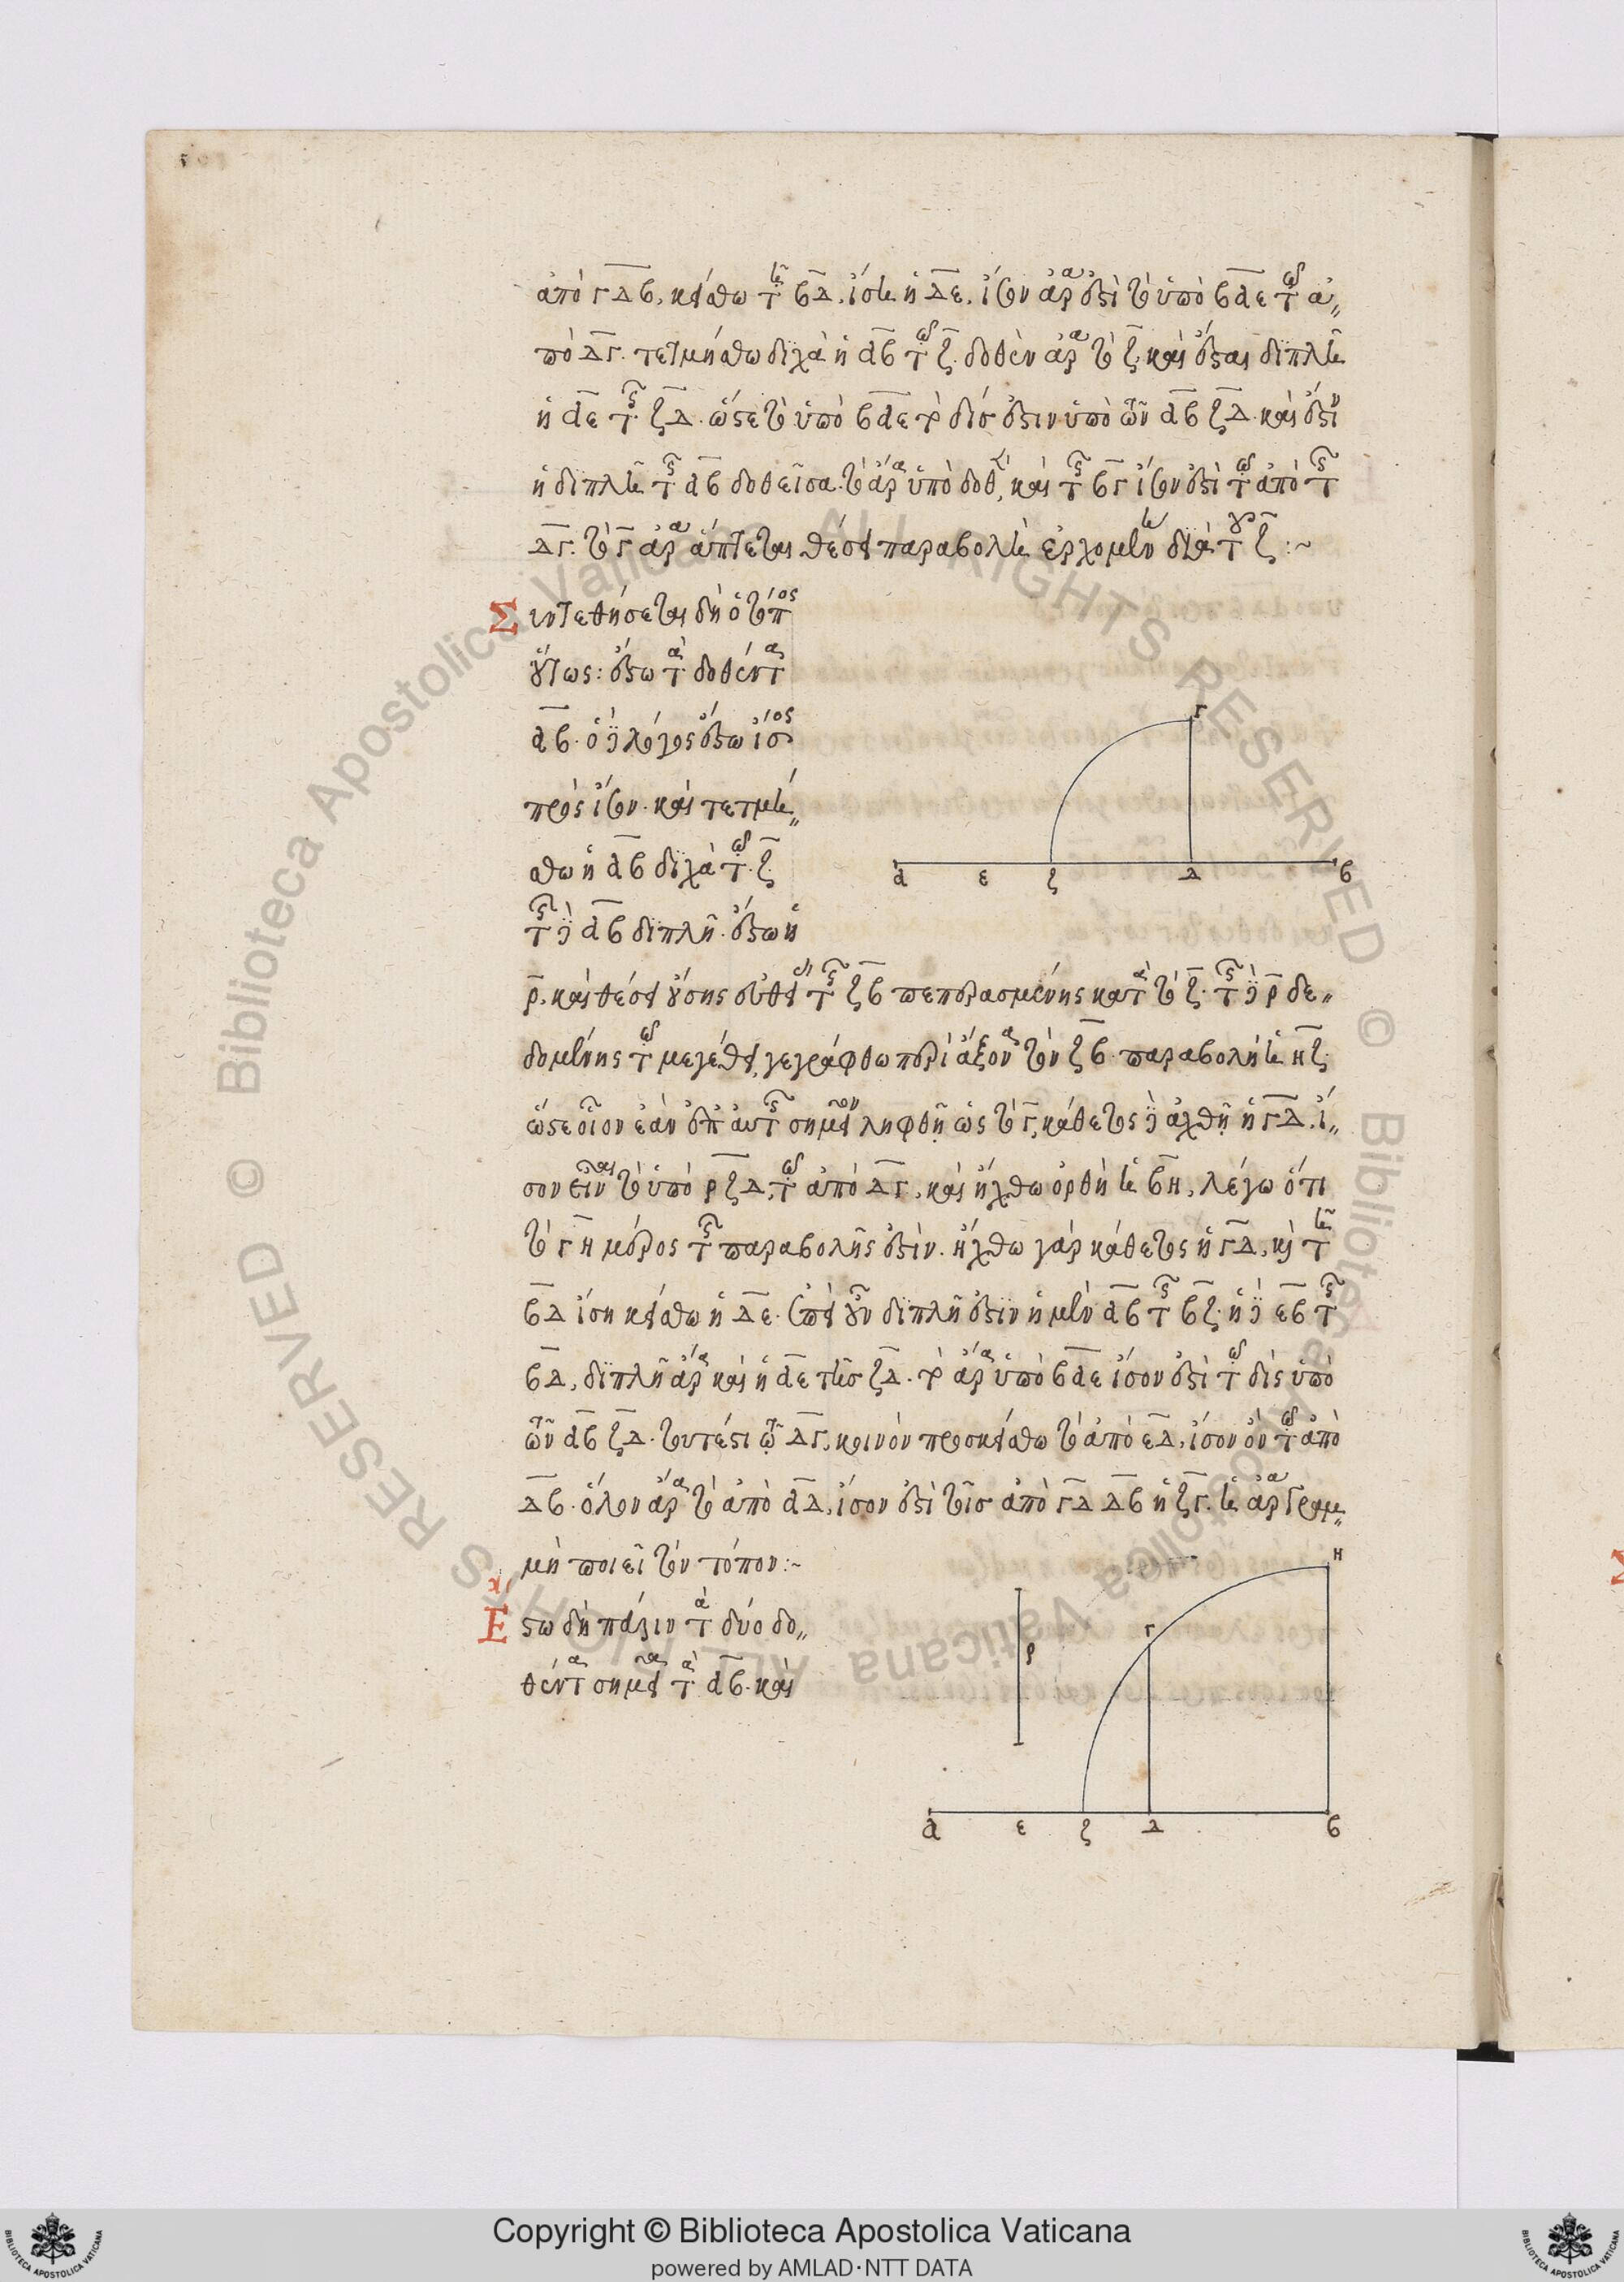 ἀπὸ ΓΔΒ, κείσθω τῇ ΒΔ, ἴση ἡ ΔΕ, ἴσον ἄρα ἐστὶ τὸ ὑπὸ ΒΑΕ τῷ ἀ
πὸ ΔΓ. τετμήσθω δίχα ἡ ΑΒ τῷ Ζ. δοθὲν ἄρα τὸ Ζ, καὶ ἔσται διπλῆ
ἡ ΑΕ τῆς ΖΔ. ὥστε τὸ ὑπὸ ΒΑΕ τὸ δίς ἐστιν ὑπὸ τῶν ΑΒ ΖΔ. καὶ ἐστιν
ἡ διπλῆ τῆς ΑΒ δοθεῖσα. τὸ ἄρα ὑπὸ δοθ, καὶ τῆς ΒΓ ἴσον ἐστὶ τῷ ἀπὸ τῆς
ΔΓ. τὸ Γ ἄρα ἅπτεται θέσει παραβολῆ ἐρχομένην διὰ τοῦ Ζ :~
Συντεθήσεται δὴ ὁ τόπος
οὕτως: ἔστω τὰ δοθέντα
ΑΒ. ὁ δὲ λόγος ἔστω ἴσος
πρὸς ἴσον. καὶ τετμή
σθω ἡ ΑΒ δίχα τῷ Ζ
τῆς δὲ ΑΒ διπλῆ. ἔστω ἡ
Ρ. καὶ θέσει οὔσης εὐθεί τῆς ΖΒ πεπερασμένης κατὰ τὸ Ζ. τῆς δὲ Ρ δε
δομένης τῷ μεγέθει, γεγράφθω περὶ ἄξονα τὸν ΖΒ. παραβολὴ ἡ ΗΖ
ὥστε οἷον ἐὰν ἐπ αὐτῆς σημεῖον ληφθῇ ὡς τὸ Γ, κάθετος δὲ ἀχθῇ ἡ ΓΔ, ἴ
σον εἶναι τὸ ὑπὸ Ρ ΖΔ, τῷ ἀπὸ ΔΓ, καὶ ἤχθω ὀρθὴ ἡ ΒΗ, λέγω ὅτι
τὸ ΓΗ μέρος τῆς παραβολῆς ἐστὶν. ἤχθω γὰρ κάθετος ἡ ΓΔ, καὶ τῇ
ΒΔ ἴση κείσθω ἡ ΔΕ. ἐπεὶ οὖν διπλῆ ἐστιν ἡ μὲν ΑΒ τῆς ΒΖ. ἡ δὲ ΕΒ τῆς
ΒΔ, διπλῆ ἄρα καὶ ἡ ΑΕ τῆς ΖΔ. τὸ ἄρα ὑπὸ ΒΑΕ ἴσον ἐστὶ τῷ δὶς ὑπὸ
τῶν ΑΒ ΖΔ. τουτέστι τῷ ΔΓ, κοινὸν προσκείσθω τὸ ἀπὸ ΕΔ, ἴσον ὂν τῷ ἀπὸ
ΔΒ. ὅλον ἄρα τὸ ἀπὸ ΑΔ, ἴσον ἐστὶ τοῖς ἀπὸ ΓΔ ΔΒ ἡ ΖΓ. ἡ ἄρα γραμ
μὴ ποιεῖ τὸν τόπον :~
Ἔστω δὴ πάλιν τὰ δύο δο
θέντα σημεῖα τὰ ΑΒ. καὶ
Γ
Α Ε Ζ Δ Β
Η
Γ
Ρ
Α Ε Ζ Δ Β
Copyright © Biblioteca Apostolica Vaticana
powered by AMLAD·NTT DATA
© Biblioteca Apostolica Vaticana ALL RIGHTS RESERVED © Biblioteca Apostolica Vaticana ALL RIGHTS RESERVED